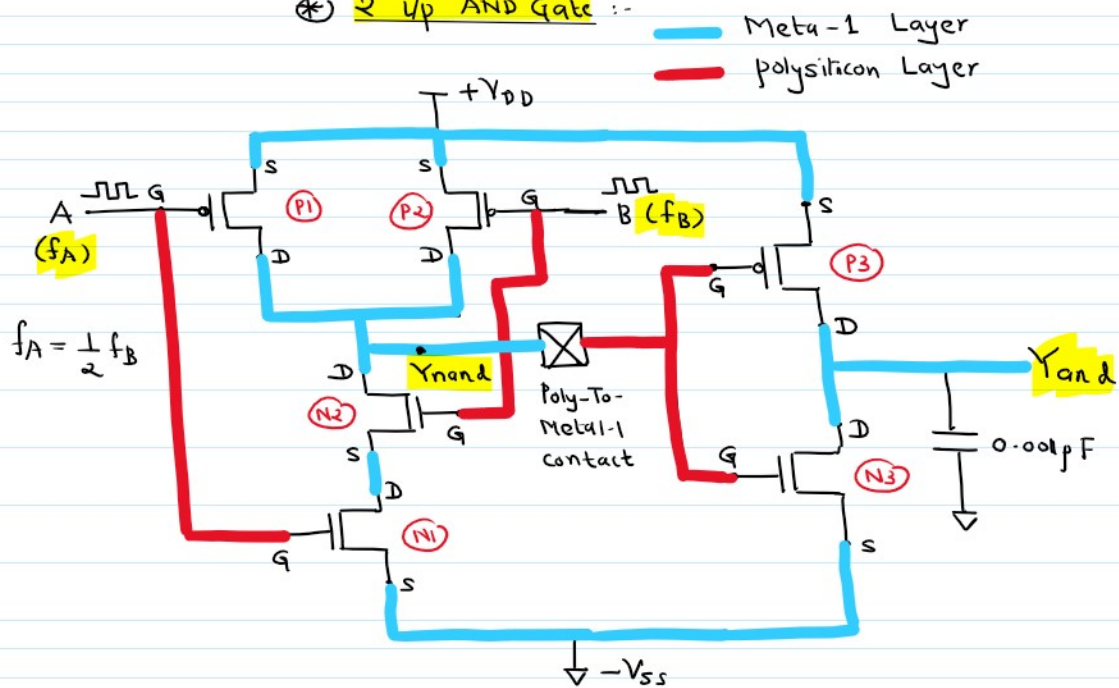 * 2 i/p AND Gate :-
Meta-1 Layer
polysilicon Layer
+VDD
S
S
S
A
G
P1
P2
G
B (fB)
(fA)
D
D
G
P3
D
fA = 1/2 fB
D
Ynand
Yand
N2
G
Poly-To-
Metal-1
contact
S
D
G
D
N3
0.001pF
G
N1
S
S
-VSS